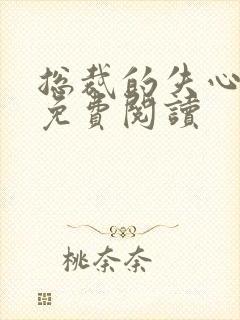 总裁的失心
免費閱讀
桃奈奈